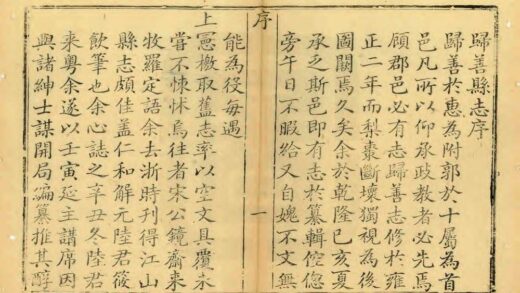 歸善縣志序
歸善於惠為附郭於十屬為首
邑凡所以仰承政教者必先焉
顧郡邑必有志歸善志修於雍
正二年而梨棗斷壞獨視為後
國闕焉久矣余於乾隆己亥夏
承乏斯邑即有志於纂輯倥傯
旁午日不暇給又自媿不文無
序
一
能為役每遇
上憲檄取舊志率以空文具覆未
嘗不悚怵焉往者宋公鏡齋來
牧羅定語余去浙時刊得江山
縣志頗佳盖仁和解元陸君筱
飲筆也余心誌之辛丑冬陸君
來粵余遂以壬寅延主講席因
與諸紳士謀開局編纂推其醇